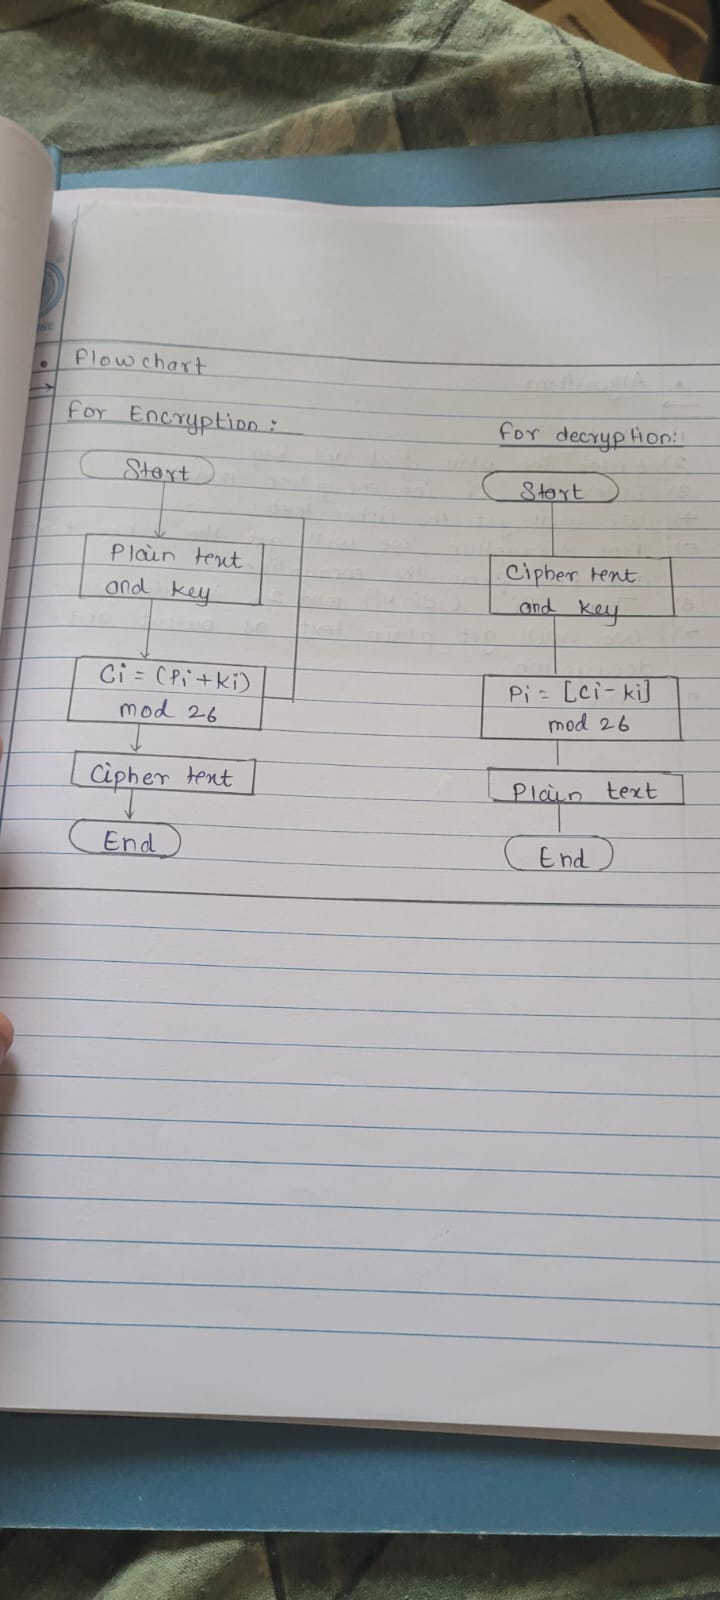 Flowchart
For Encryption:
Start
Plain text
and key
Ci = (Pi + ki)
mod 26
Cipher text
End
For decryption:
Start
Cipher text
and key
Pi = [Ci - ki]
mod 26
Plain text
End